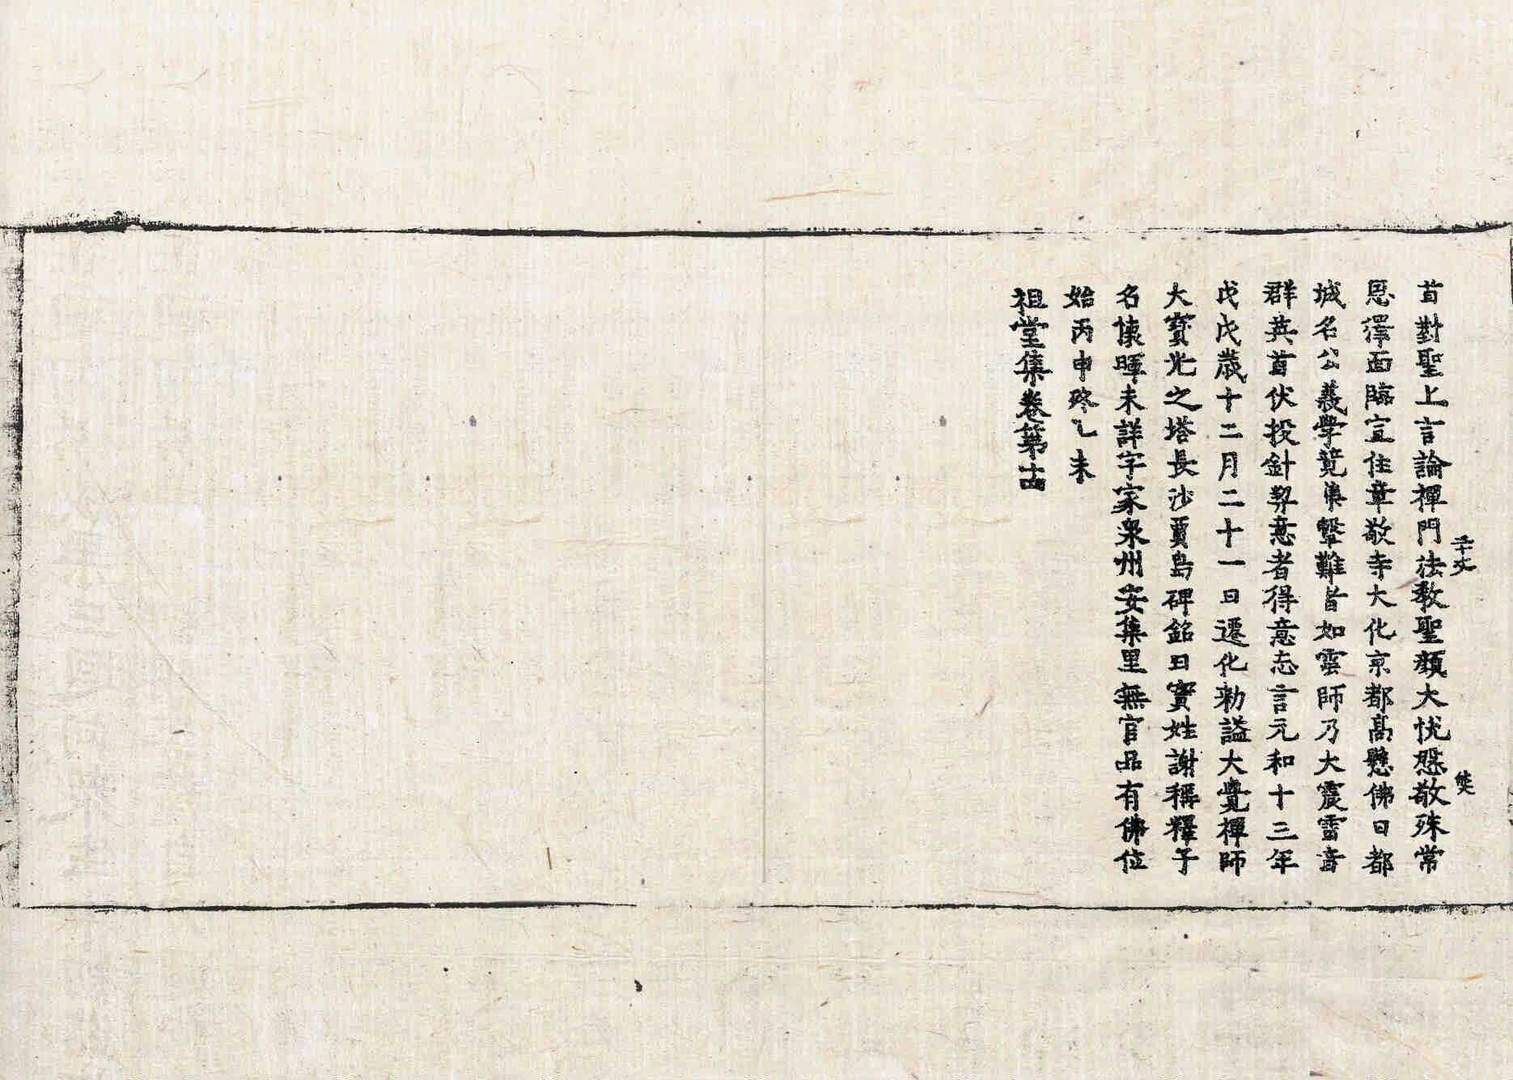 首對聖上言論禪門法教聖顏大悅慇敬殊常
恩澤面臨宣住章敬寺大化京都高懸佛日都
城名公義學竟集擊難者如雲師乃大震雷音
群英首伏投針契意者得意忘言元和十三年
戊戌歲十二月二十一日遷化勑謚大覺禪師
大寶光之塔長沙賈島碑銘曰實姓謝稱釋子
名懷暉未詳字家泉州安集里無官品有佛位
始丙申終乙未
祖堂集卷第十四